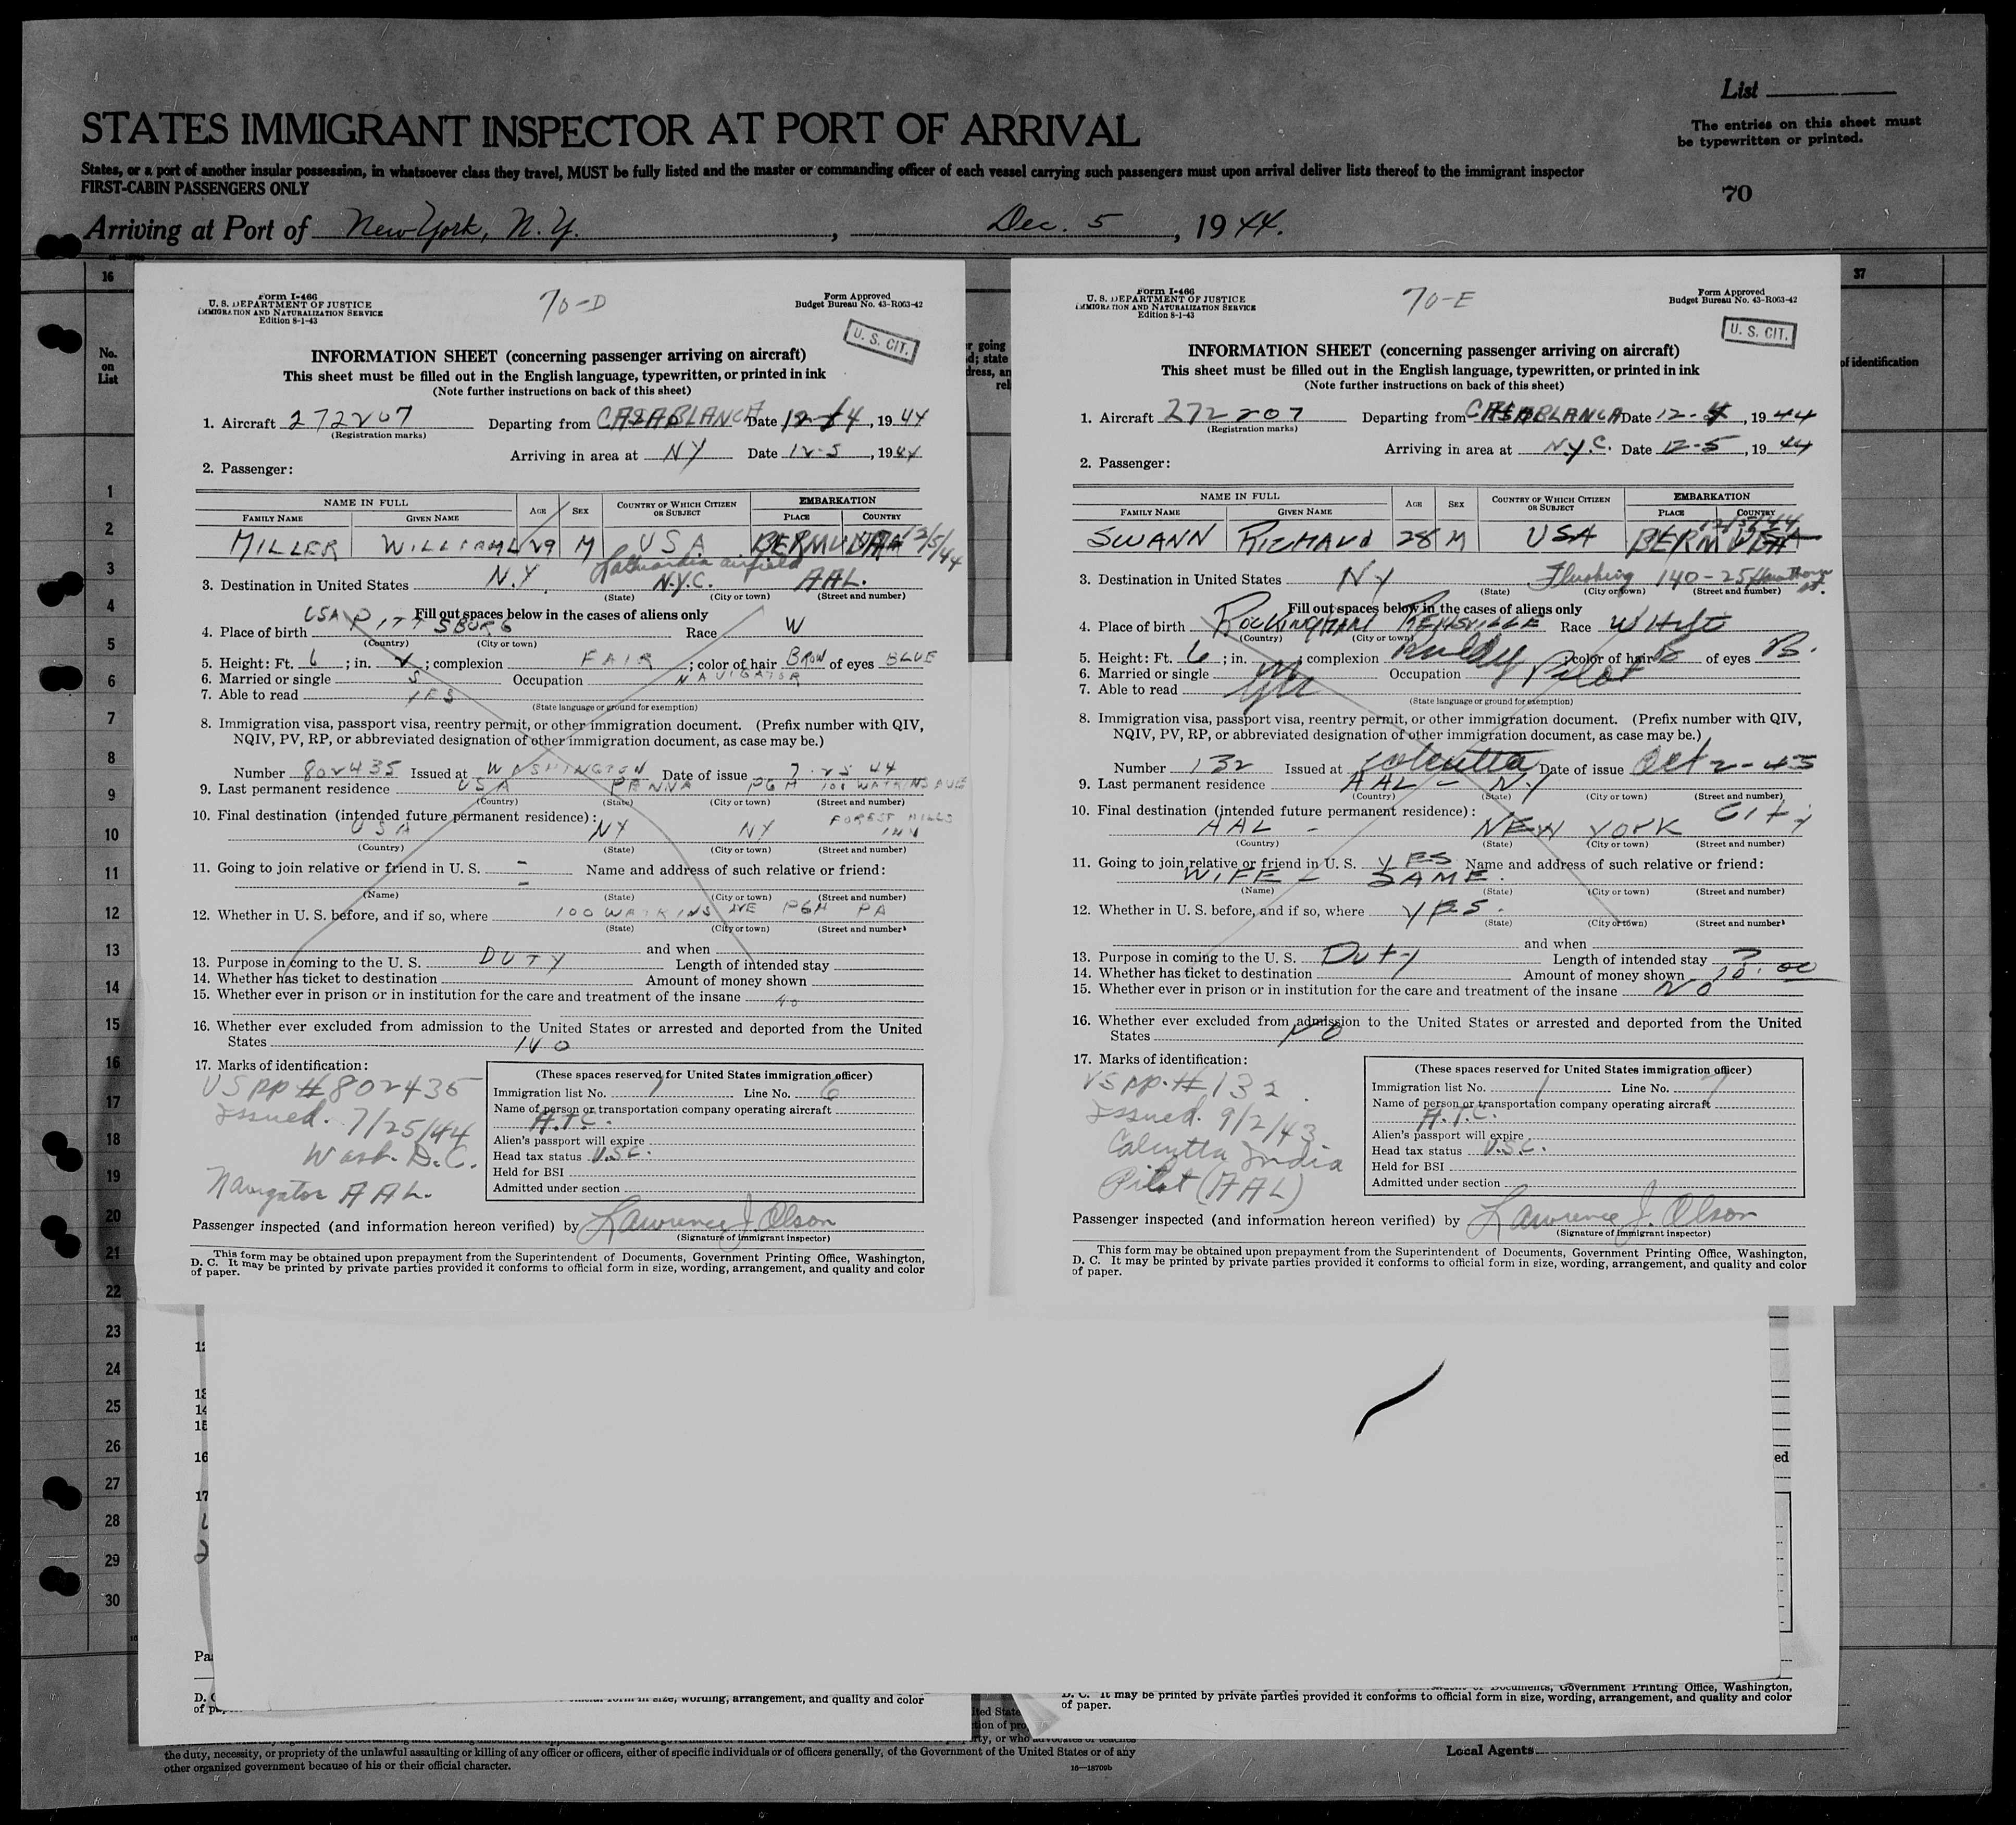 List
STATES IMMIGRANT INSPECTOR AT PORT OF ARRIVAL
The entries on this sheet must
be typewritten or printed.
States, or a port of another insular possession, in whatsoever class they travel, MUST be fully listed and the master or commanding officer of each vessel carrying such passengers must upon arrival deliver lists thereof to the immigrant inspector
FIRST-CABIN PASSENGERS ONLY
70
Arriving at Port of New York, N. Y. , Dec. 5 , 1944.
16
37
No.
on
List
of identification
1
2
3
4
5
6
7
8
9
10
11
12
13
14
15
16
17
18
19
20
21
22
23
24
25
26
27
28
29
30
Form I-466
U. S. DEPARTMENT OF JUSTICE
IMMIGRATION AND NATURALIZATION SERVICE
Edition 8-1-43
70-D
Form Approved
Budget Bureau No. 43-R063-42
U. S. CIT.
INFORMATION SHEET (concerning passenger arriving on aircraft)
This sheet must be filled out in the English language, typewritten, or printed in ink
(Note further instructions on back of this sheet)
1. Aircraft 272207 Departing from CASABLANCA Date 12-4, 1944
(Registration marks)
Arriving in area at NY Date 12-5, 1944
2. Passenger:
NAME IN FULL AGE SEX COUNTRY OF WHICH CITIZEN OR SUBJECT EMBARKATION
FAMILY NAME GIVEN NAME PLACE COUNTRY
MILLER WILLIAM L 29 M USA BERMUDA 12/5/44
LaGuardia airfield
3. Destination in United States N.Y. N.Y.C. AAL.
(State) (City or town) (Street and number)
Fill out spaces below in the cases of aliens only
4. Place of birth USA PITTSBURG Race W
(Country) (City or town)
5. Height: Ft. 6 ; in. ; complexion FAIR ; color of hair BROW of eyes BLUE
6. Married or single S Occupation NAVIGATOR
7. Able to read YES
(State language or ground for exemption)
8. Immigration visa, passport visa, reentry permit, or other immigration document. (Prefix number with QIV,
NQIV, PV, RP, or abbreviated designation of other immigration document, as case may be.)
Number 802435 Issued at WASHINGTON Date of issue 7 25 44
9. Last permanent residence USA PENNA PGH 100 WATKINS AVE
(Country) (State) (City or town) (Street and number)
10. Final destination (intended future permanent residence):
USA NY NY FOREST HILLS INN
(Country) (State) (City or town) (Street and number)
11. Going to join relative or friend in U. S. - Name and address of such relative or friend:
-
(Name) (State) (City or town) (Street and number)
12. Whether in U. S. before, and if so, where 100 WATKINS AVE PGH PA
(State) (City or town) (Street and number)
and when
13. Purpose in coming to the U. S. DUTY Length of intended stay
14. Whether has ticket to destination Amount of money shown
15. Whether ever in prison or in institution for the care and treatment of the insane
16. Whether ever excluded from admission to the United States or arrested and deported from the United
States NO
17. Marks of identification:
US pp # 802435
Issued. 7/25/44
Wash. D.C.
Navigator AAL.
(These spaces reserved for United States immigration officer)
Immigration list No. 1 Line No. 6
Name of person or transportation company operating aircraft
A.T.C.
Alien's passport will expire
Head tax status U.S.C.
Held for BSI
Admitted under section
Passenger inspected (and information hereon verified) by Lawrence J. Olson
(Signature of immigrant inspector)
This form may be obtained upon prepayment from the Superintendent of Documents, Government Printing Office, Washington,
D. C. It may be printed by private parties provided it conforms to official form in size, wording, arrangement, and quality and color
of paper.
Form I-466
U. S. DEPARTMENT OF JUSTICE
IMMIGRATION AND NATURALIZATION SERVICE
Edition 8-1-43
70-E
Form Approved
Budget Bureau No. 43-R063-42
U. S. CIT.
INFORMATION SHEET (concerning passenger arriving on aircraft)
This sheet must be filled out in the English language, typewritten, or printed in ink
(Note further instructions on back of this sheet)
1. Aircraft 272207 Departing from CASABLANCA Date 12-4, 1944
(Registration marks)
Arriving in area at N.Y.C. Date 12-5, 1944
2. Passenger:
NAME IN FULL AGE SEX COUNTRY OF WHICH CITIZEN OR SUBJECT EMBARKATION
FAMILY NAME GIVEN NAME PLACE COUNTRY
12/5/44
SWANN RICHARD 28 M USA BERMUDA
3. Destination in United States NY Flushing 140-25 Hawthorn st.
(State) (City or town) (Street and number)
Fill out spaces below in the cases of aliens only
4. Place of birth ROCKINGHAM REIDSVILLE Race White
(Country) (City or town)
5. Height: Ft. 6 ; in. ; complexion Ruddy ; color of hair B of eyes B.
6. Married or single M Occupation Pilot
7. Able to read yes
(State language or ground for exemption)
8. Immigration visa, passport visa, reentry permit, or other immigration document. (Prefix number with QIV,
NQIV, PV, RP, or abbreviated designation of other immigration document, as case may be.)
Number 132 Issued at Calcutta Date of issue Oct 2-43
9. Last permanent residence AAL - N.Y
(Country) (State) (City or town) (Street and number)
10. Final destination (intended future permanent residence):
AAL - NEW YORK City
(Country) (State) (City or town) (Street and number)
11. Going to join relative or friend in U. S. YES Name and address of such relative or friend:
WIFE - SAME.
(Name) (State) (City or town) (Street and number)
12. Whether in U. S. before, and if so, where YES.
(State) (City or town) (Street and number)
and when
13. Purpose in coming to the U. S. Duty Length of intended stay ?
14. Whether has ticket to destination Amount of money shown 10.00
15. Whether ever in prison or in institution for the care and treatment of the insane NO
16. Whether ever excluded from admission to the United States or arrested and deported from the United
States NO
17. Marks of identification:
US pp. # 132
Issued. 9/2/43.
Calcutta India
Pilot (AAL)
(These spaces reserved for United States immigration officer)
Immigration list No. 1 Line No. 7
Name of person or transportation company operating aircraft
A.T.C.
Alien's passport will expire
Head tax status U.S.C.
Held for BSI
Admitted under section
Passenger inspected (and information hereon verified) by Lawrence J. Olson
(Signature of immigrant inspector)
This form may be obtained upon prepayment from the Superintendent of Documents, Government Printing Office, Washington,
D. C. It may be printed by private parties provided it conforms to official form in size, wording, arrangement, and quality and color
of paper.
size, wording, arrangement, and quality and color
Documents, Government Printing Office, Washington,
D. C. It may be printed by private parties provided it conforms to official form in size, wording, arrangement, and quality and color
of paper.
the duty, necessity, or propriety of the unlawful assaulting or killing of any officer or officers, either of specific individuals or of officers generally, of the Government of the United States or of any
other organized government because of his or their official character.
16—18709b
Local Agents